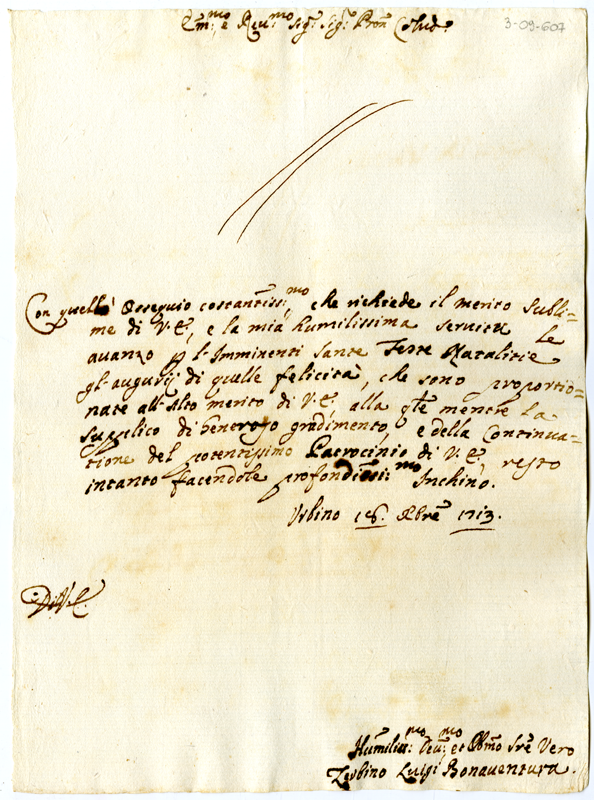 Em:mo e Reu:mo Sig:r Sig:r Pron Col:mo
3-09-607
Con quell' Ossequio costantiss:mo che richiede il merito Subli=
me di V.E., e la mia humilissima seruitù le
auanzo p l'Imminenti Sante Feste Natalitie
gl'augurij di quelle felicità, che sono proportio=
nate all'Alto merito di V.E., alla qle mentre la
supplico di generoso gradimento, e della Continua=
tione del potentissimo Patrocinio di V.E., resto
intanto facendole profondissi:mo Inchino.
Vrbino 16. Xbre 1713.
Di V.E.
Humiliss:mo Deu:mo et Obmo Sre Vero
Zerbino Luigi Bonauentura.